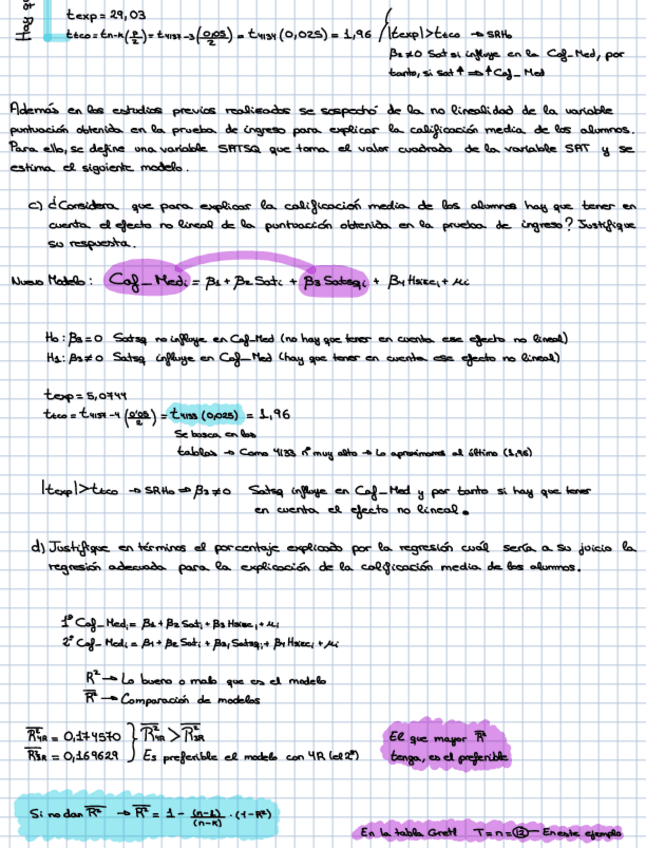 Hay
texp = 29,03
tteo = tn-k(p/2) = t4137-3(0'05/2) = t4134(0,025) = 1,96 / |texp|>tteo → SRH₀
β₂≠0 Sat si influye en la Caf_Med, por
tanto, si sat ↑ ⇒ ↑Caf_Med
Además en los estudios previos realizados se sospechó de la no linealidad de la variable
puntuación obtenida en la prueba de ingreso para explicar la calificación media de los alumnos.
Para ello, se define una variable SATSQ que toma el valor cuadrado de la variable SAT y se
estima el siguiente modelo.
c) ¿Considera que para explicar la calificación media de los alumnos hay que tener en
cuenta el efecto no lineal de la puntuación obtenida en la prueba de ingreso? Justifique
su respuesta.
Nuevo Modelo: Caf_Medi = β1 + β2 Sati + β3 Satsqi + β4 Hsizei + μi
H₀: β₃=0 Satsq no influye en Caf_Med (no hay que tener en cuenta ese efecto no lineal)
H₁: β₃≠0 Satsq influye en Caf_Med (hay que tener en cuenta ese efecto no lineal)
texp = 5,0744
tteo = t4137-4 (0'05/2) = t4133 (0,025) = 1,96
Se busca en las
tablas → Como 4133 nº muy alto → Lo aproximamos al último (1,96)
|texp|>tteo → SRH₀ ⇒ β₃≠0 Satsq influye en Caf_Med y por tanto si hay que tener
en cuenta el efecto no lineal.
d) Justifique en términos el porcentaje explicado por la regresión cuál sería a su juicio la
regresión adecuada para la explicación de la calificación media de los alumnos.
1º Caf_Medi = β1 + β2 Sati + β3 Hsizei + μi
2º Caf_Medi = β1 + β2 Sati + β3, Satsqi + β4 Hsizei + μi
R² → Lo bueno o malo que es el modelo
R̅² → Comparación de modelos
R̅²4R = 0,174570 } R̅²4R > R̅²3R
R̅²3R = 0,169629 } Es preferible el modelo con 4R (el 2º)
El que mayor R̅²
tenga, es el preferible
Si no dan R̅² → R̅² = 1 - (n-1)/(n-k) · (1-R²)
En la tabla Gretl T=n=12 → En este ejemplo